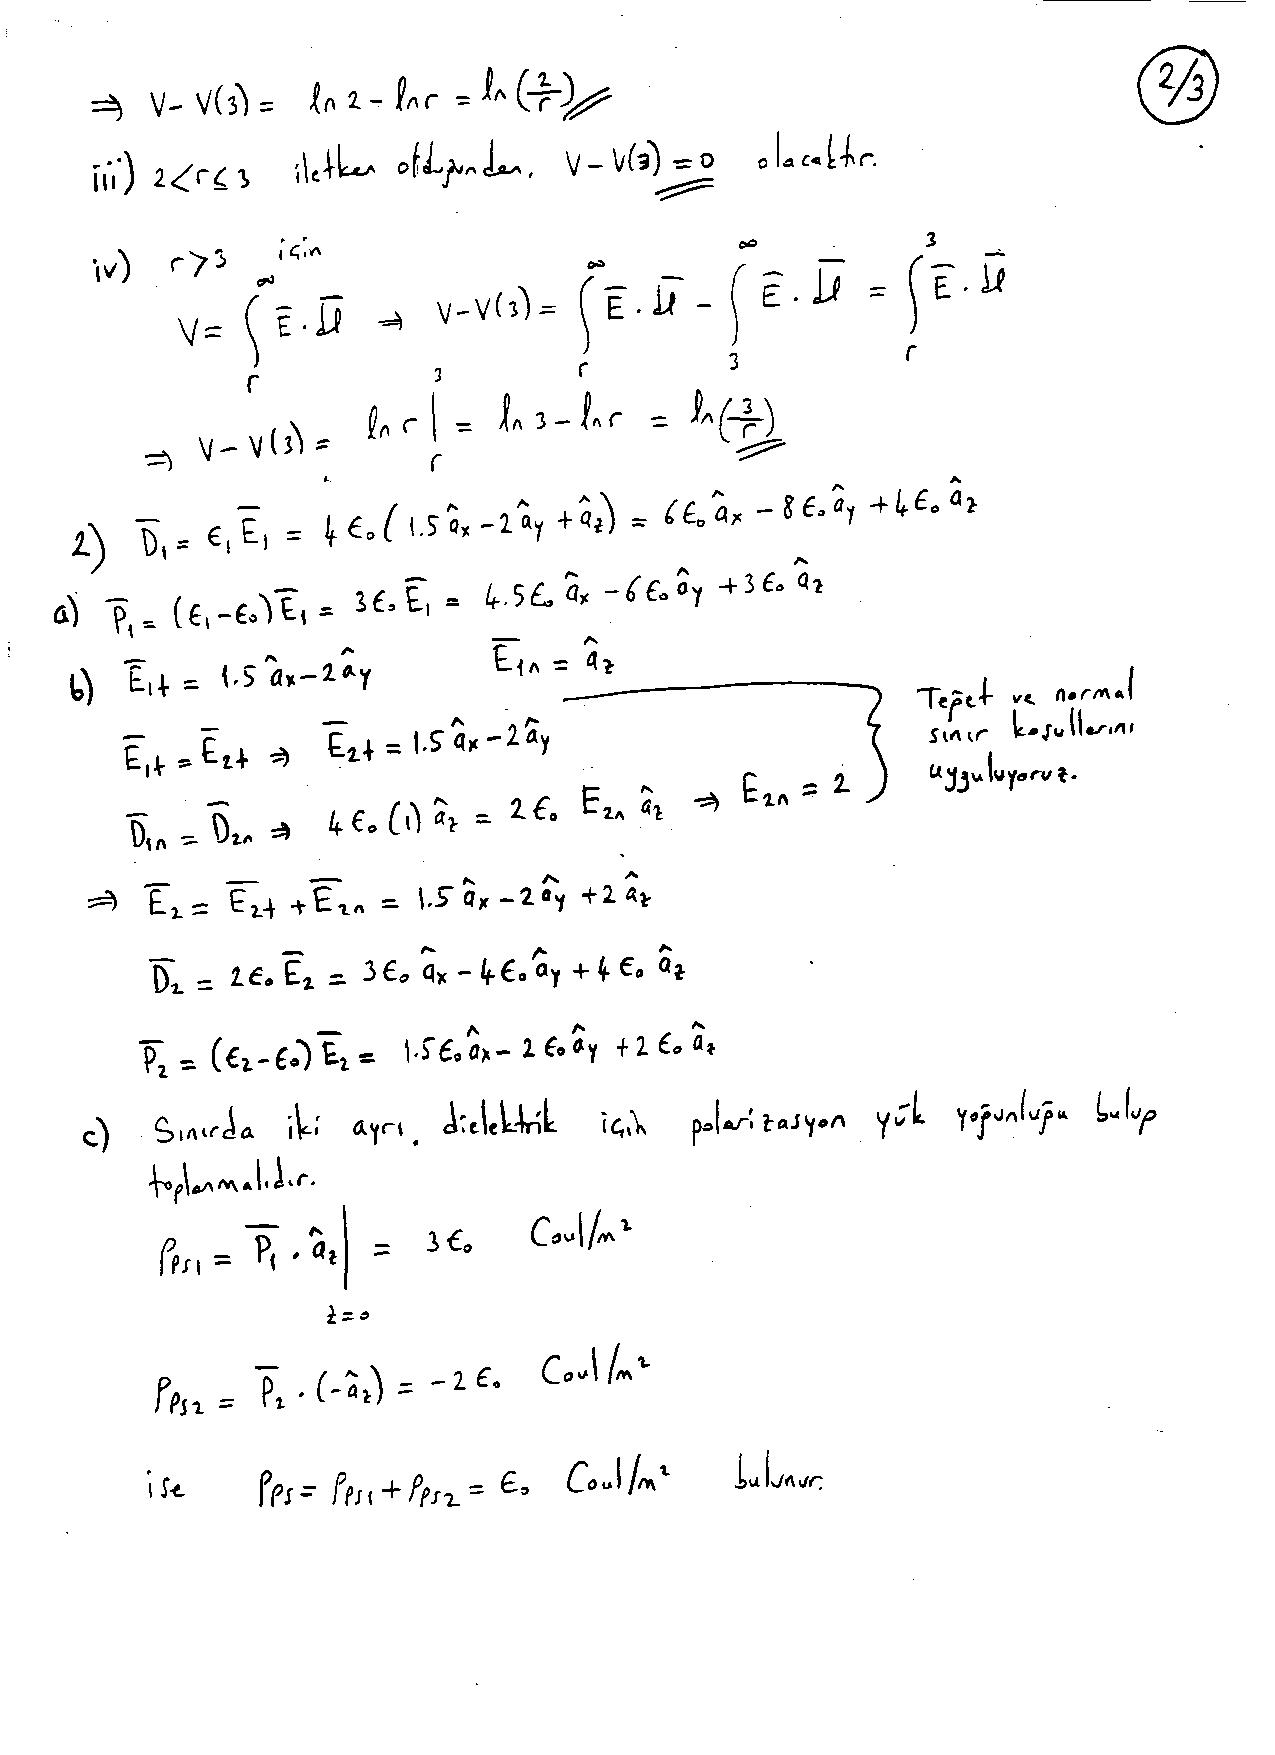 2/3
⇒ V - V(3) = ln 2 - ln r = ln(2/r)
iii) 2<r≤3 iletken olduğundan, V - V(3) = 0 olacaktır.
iv) r>3 için
V = ∫_r^∞ E̅ . dl̅ ⇒ V - V(3) = ∫_r^∞ E̅ . dl̅ - ∫_3^∞ E̅ . dl̅ = ∫_r^3 E̅ . dl̅
⇒ V - V(3) = ln r |_r^3 = ln 3 - ln r = ln(3/r)
2) D̅₁ = ϵ₁E̅₁ = 4ϵ₀(1.5âx - 2ây + âz) = 6ϵ₀âx - 8ϵ₀ây + 4ϵ₀âz
a) P̅₁ = (ϵ₁-ϵ₀)E̅₁ = 3ϵ₀E̅₁ = 4.5ϵ₀âx - 6ϵ₀ây + 3ϵ₀âz
b) E̅₁t = 1.5âx - 2ây E̅₁n = âz
E̅₁t = E̅₂t ⇒ E̅₂t = 1.5âx - 2ây
D̅₁n = D̅₂n ⇒ 4ϵ₀(1)âz = 2ϵ₀ E₂n âz ⇒ E₂n = 2
Teğet ve normal
sınır koşullarını
uyguluyoruz.
⇒ E̅₂ = E̅₂t + E̅₂n = 1.5âx - 2ây + 2âz
D̅₂ = 2ϵ₀E̅₂ = 3ϵ₀âx - 4ϵ₀ây + 4ϵ₀âz
P̅₂ = (ϵ₂-ϵ₀)E̅₂ = 1.5ϵ₀âx - 2ϵ₀ây + 2ϵ₀âz
c) Sınırda iki ayrı dielektrik için polarizasyon yük yoğunluğu bulup
toplanmalıdır.
ρps1 = P̅₁ . âz |_z=0 = 3ϵ₀ Coul/m²
ρps2 = P̅₂ . (-âz) = -2ϵ₀ Coul/m²
ise ρps = ρps1 + ρps2 = ϵ₀ Coul/m² bulunur.